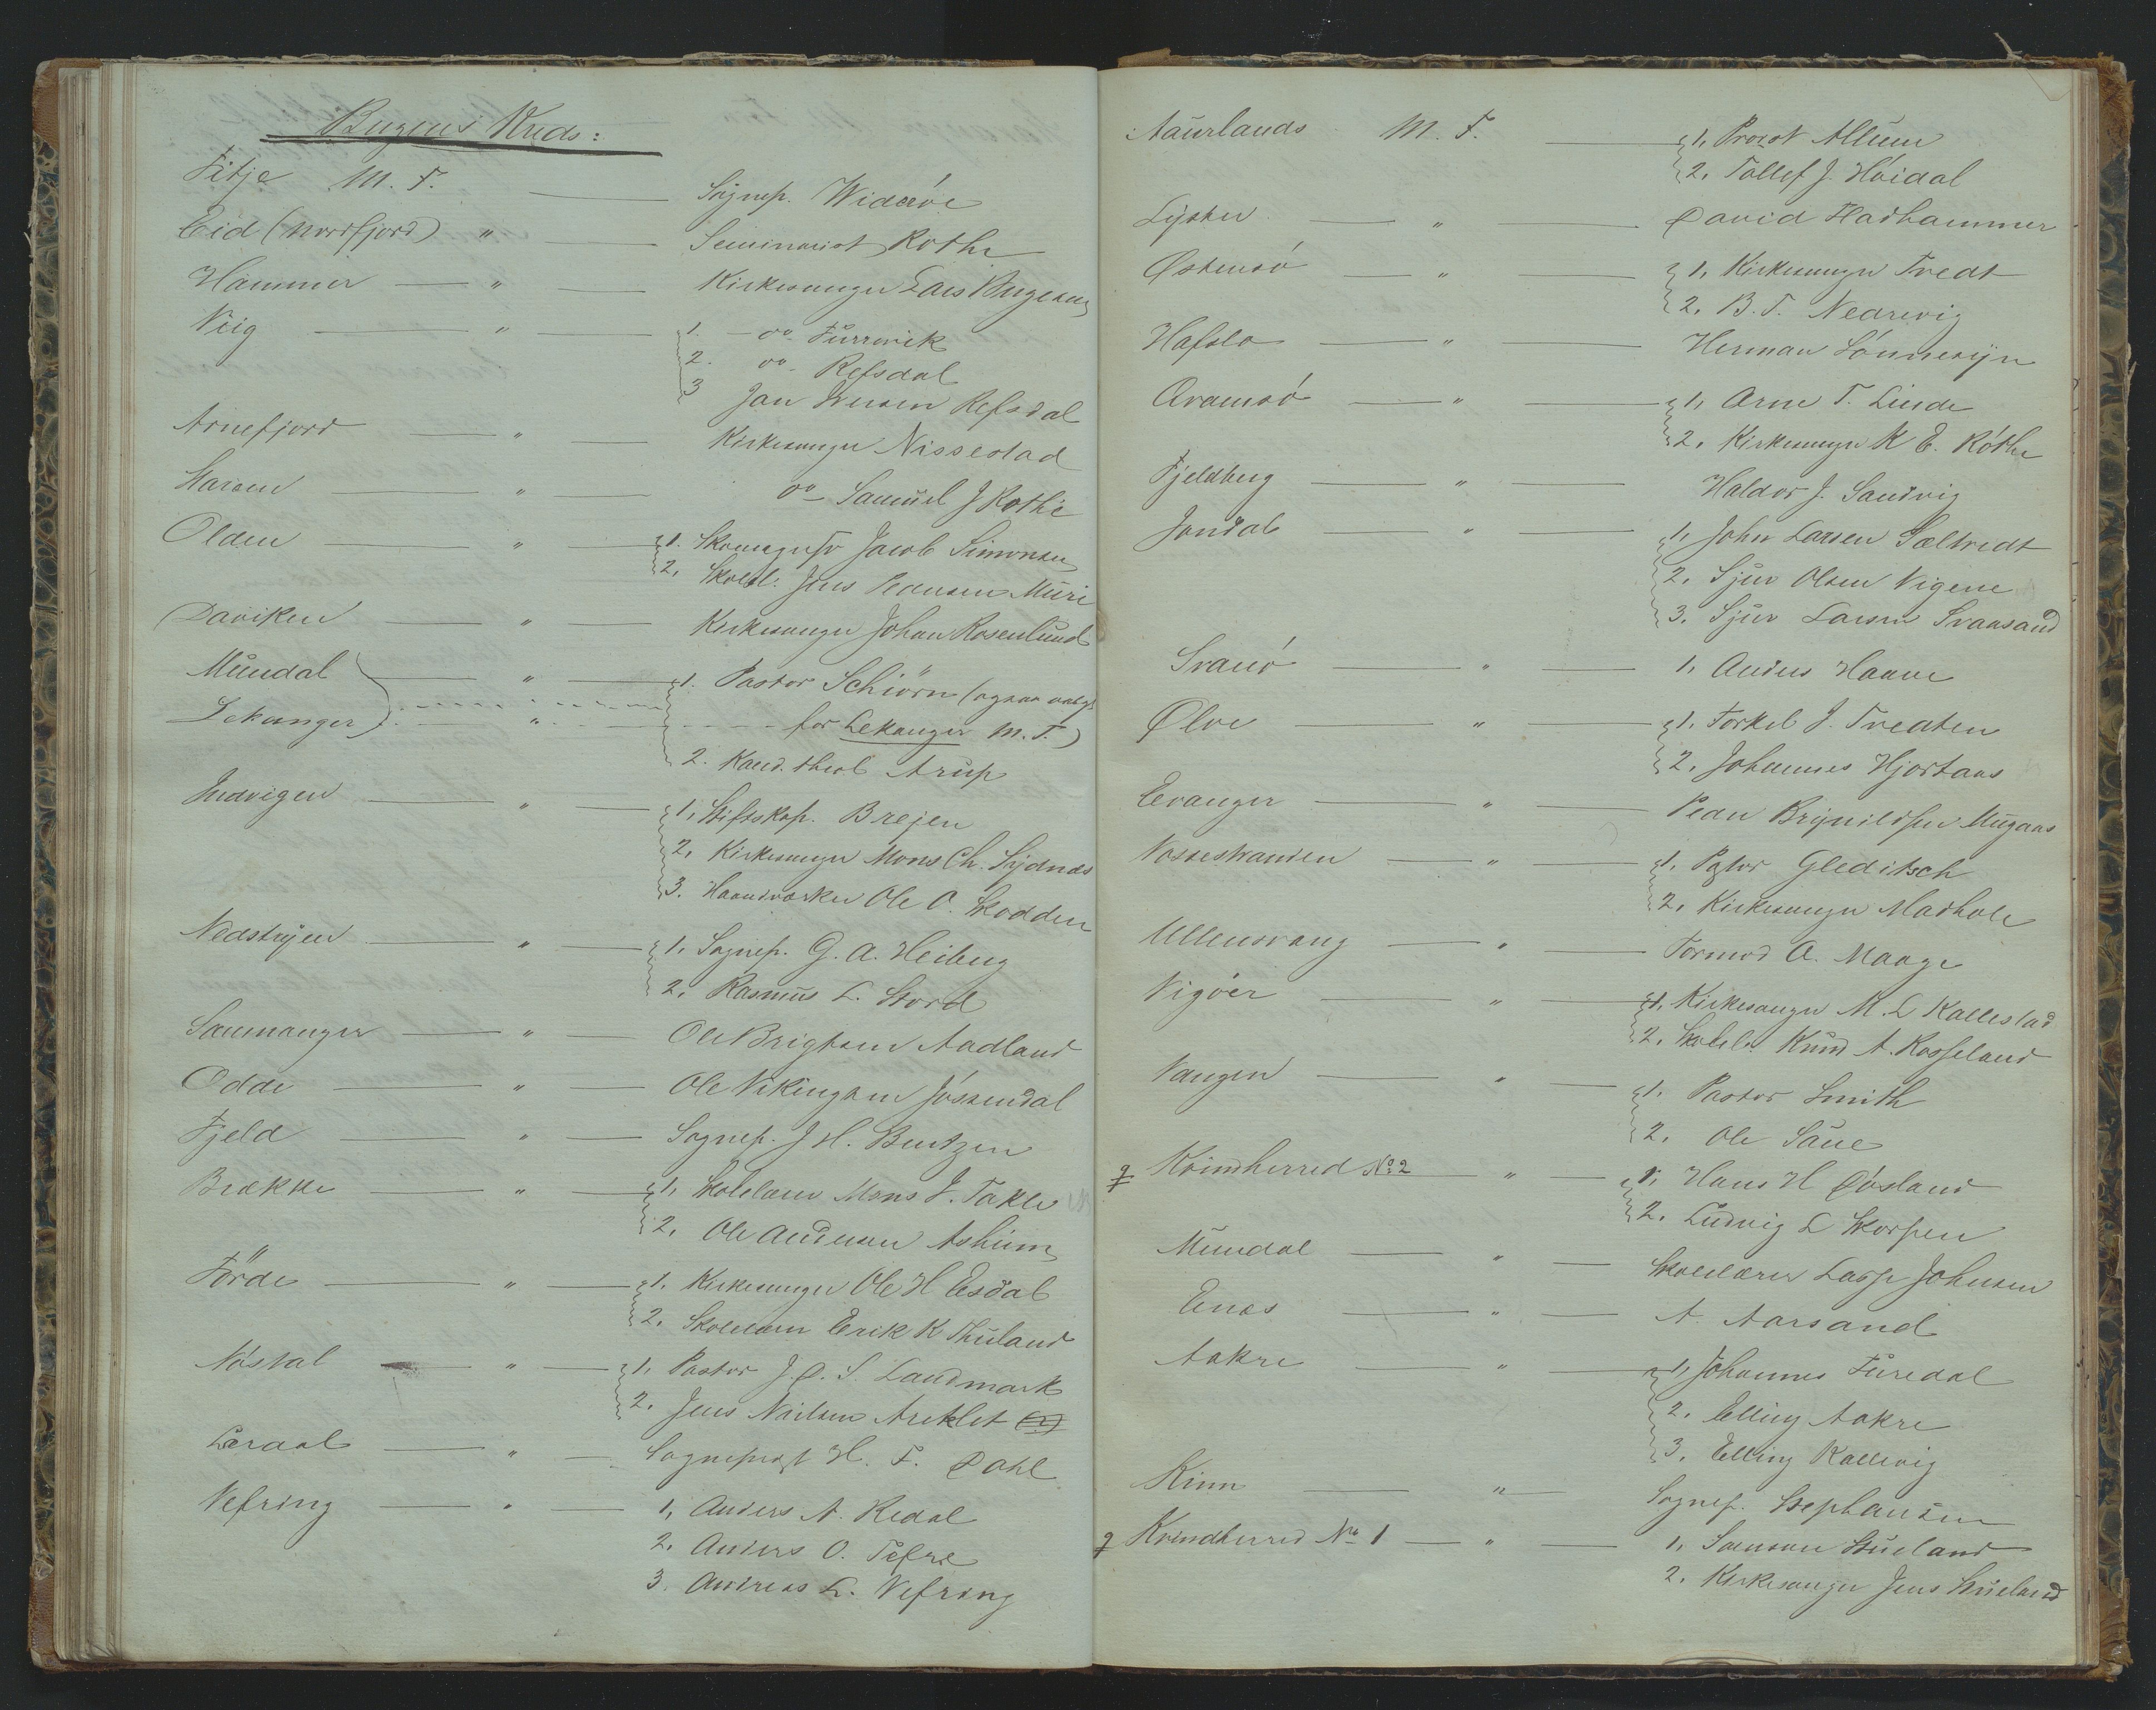 Bergens Kreds:
Fitje M. F. Sognep. Widerøe
Eid (Nordfjord) " Seminarist Rothe
Hammer " Kirkesanger Lars Bugesen
Viig " 1. do Furrevik
2. do Refsdal
3 Jan Iversen Refsdal
Arnefjord " Kirkesanger Nissestad
" do Samuel J Rothe
Olden " 1. Jacob Simonsen
2. Skolel. Jens Muri
Daviken " Kirkesanger Johan Rosenlund
Mundal " 1. Pastor Schiörn (ogsaa valgt
Lekanger " for Lekanger M. F.)
2. Kand. theol Arup
Indvigen " 1. Stiftskap. Brejen
2. Kirkesanger Mons Ch. Sydnæs
3. Haandværker Ole O. Skodden
Nedstryen " 1. Sognep. G. A. Heiberg
2. Rasmus L. Stord
Sammanger " Ole Brigtsen Aadland
Odde " Ole Vikingsen Jøssendal
Fjeld " Sognep. J H. Bentzen
Brække " 1. Skolelærer Mons J. Takle
2. Ole Andersen Asheim
Förde " 1. Kirkesanger Ole H Esdal
2. Skolelærer Erik K Thuland
Nøstal " 1. Pastor J. C. S. Landmark
2. Jens Nielsen Areklet
Lærdal " Sogneprest H. F. Dahl
Vefring " 1, Anders A. Redal
2. Anders O. Tefre
3. Andreas L. Vefring
Aaurlands M. F. 1. Provst Allum
2. Tollef J. Høidal
Lyster " David Hadhammer
Østensö " 1. Kirkesanger Tvedt
2. B. T. Nedrevig
Hafslo " Herman Lønnesyn
Qvamsö " 1, Arne T. Linde
2. Kirkesanger K E. Röthe
Fjeldberg " Haldor J. Sandvig
Jondal " 1, John Larsen Sæltvedt
2. Sjur Olsen Vigene
3. Sjur Larsen Svaasand
Svanö " 1, Anders Haave
Ølve " 1. Torkel J. Tvedten
2. Johannes Hjortaas
Evanger " Peder Brynildsen Mugaas
Vossestranden " 1. Pastor Gleditsch
2. Kirkesanger Madhole
Ullensvang " Tormod A. Maage
Vigöer " 1. Kirkesanger M. L Kallestad
2. Skolel. Knud A. Rosseland
Vangen " 1. Pastor Smith
2. Ole Saue
Kvindherred No 2 " 1, Hans H Døsland
2. Ludvig L Skorpen
Mundal " Skolelærer Lasse Johnsen
Enæs " A. Aarsand
Aakre " 1, Johannes Furedal
2. Elling Aakre
3. Elling Kallevig
Kinn " Sognep. Stephansen
Kvindherred No 1 " 1, Samson Skueland
2. Kirkesanger Jens Skueland